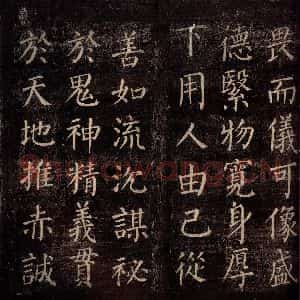 畏而儀可像盛
德緊物寬身厚
下用人由己從
善如流沈謀祕
於鬼神精義貫
於天地推赤誠